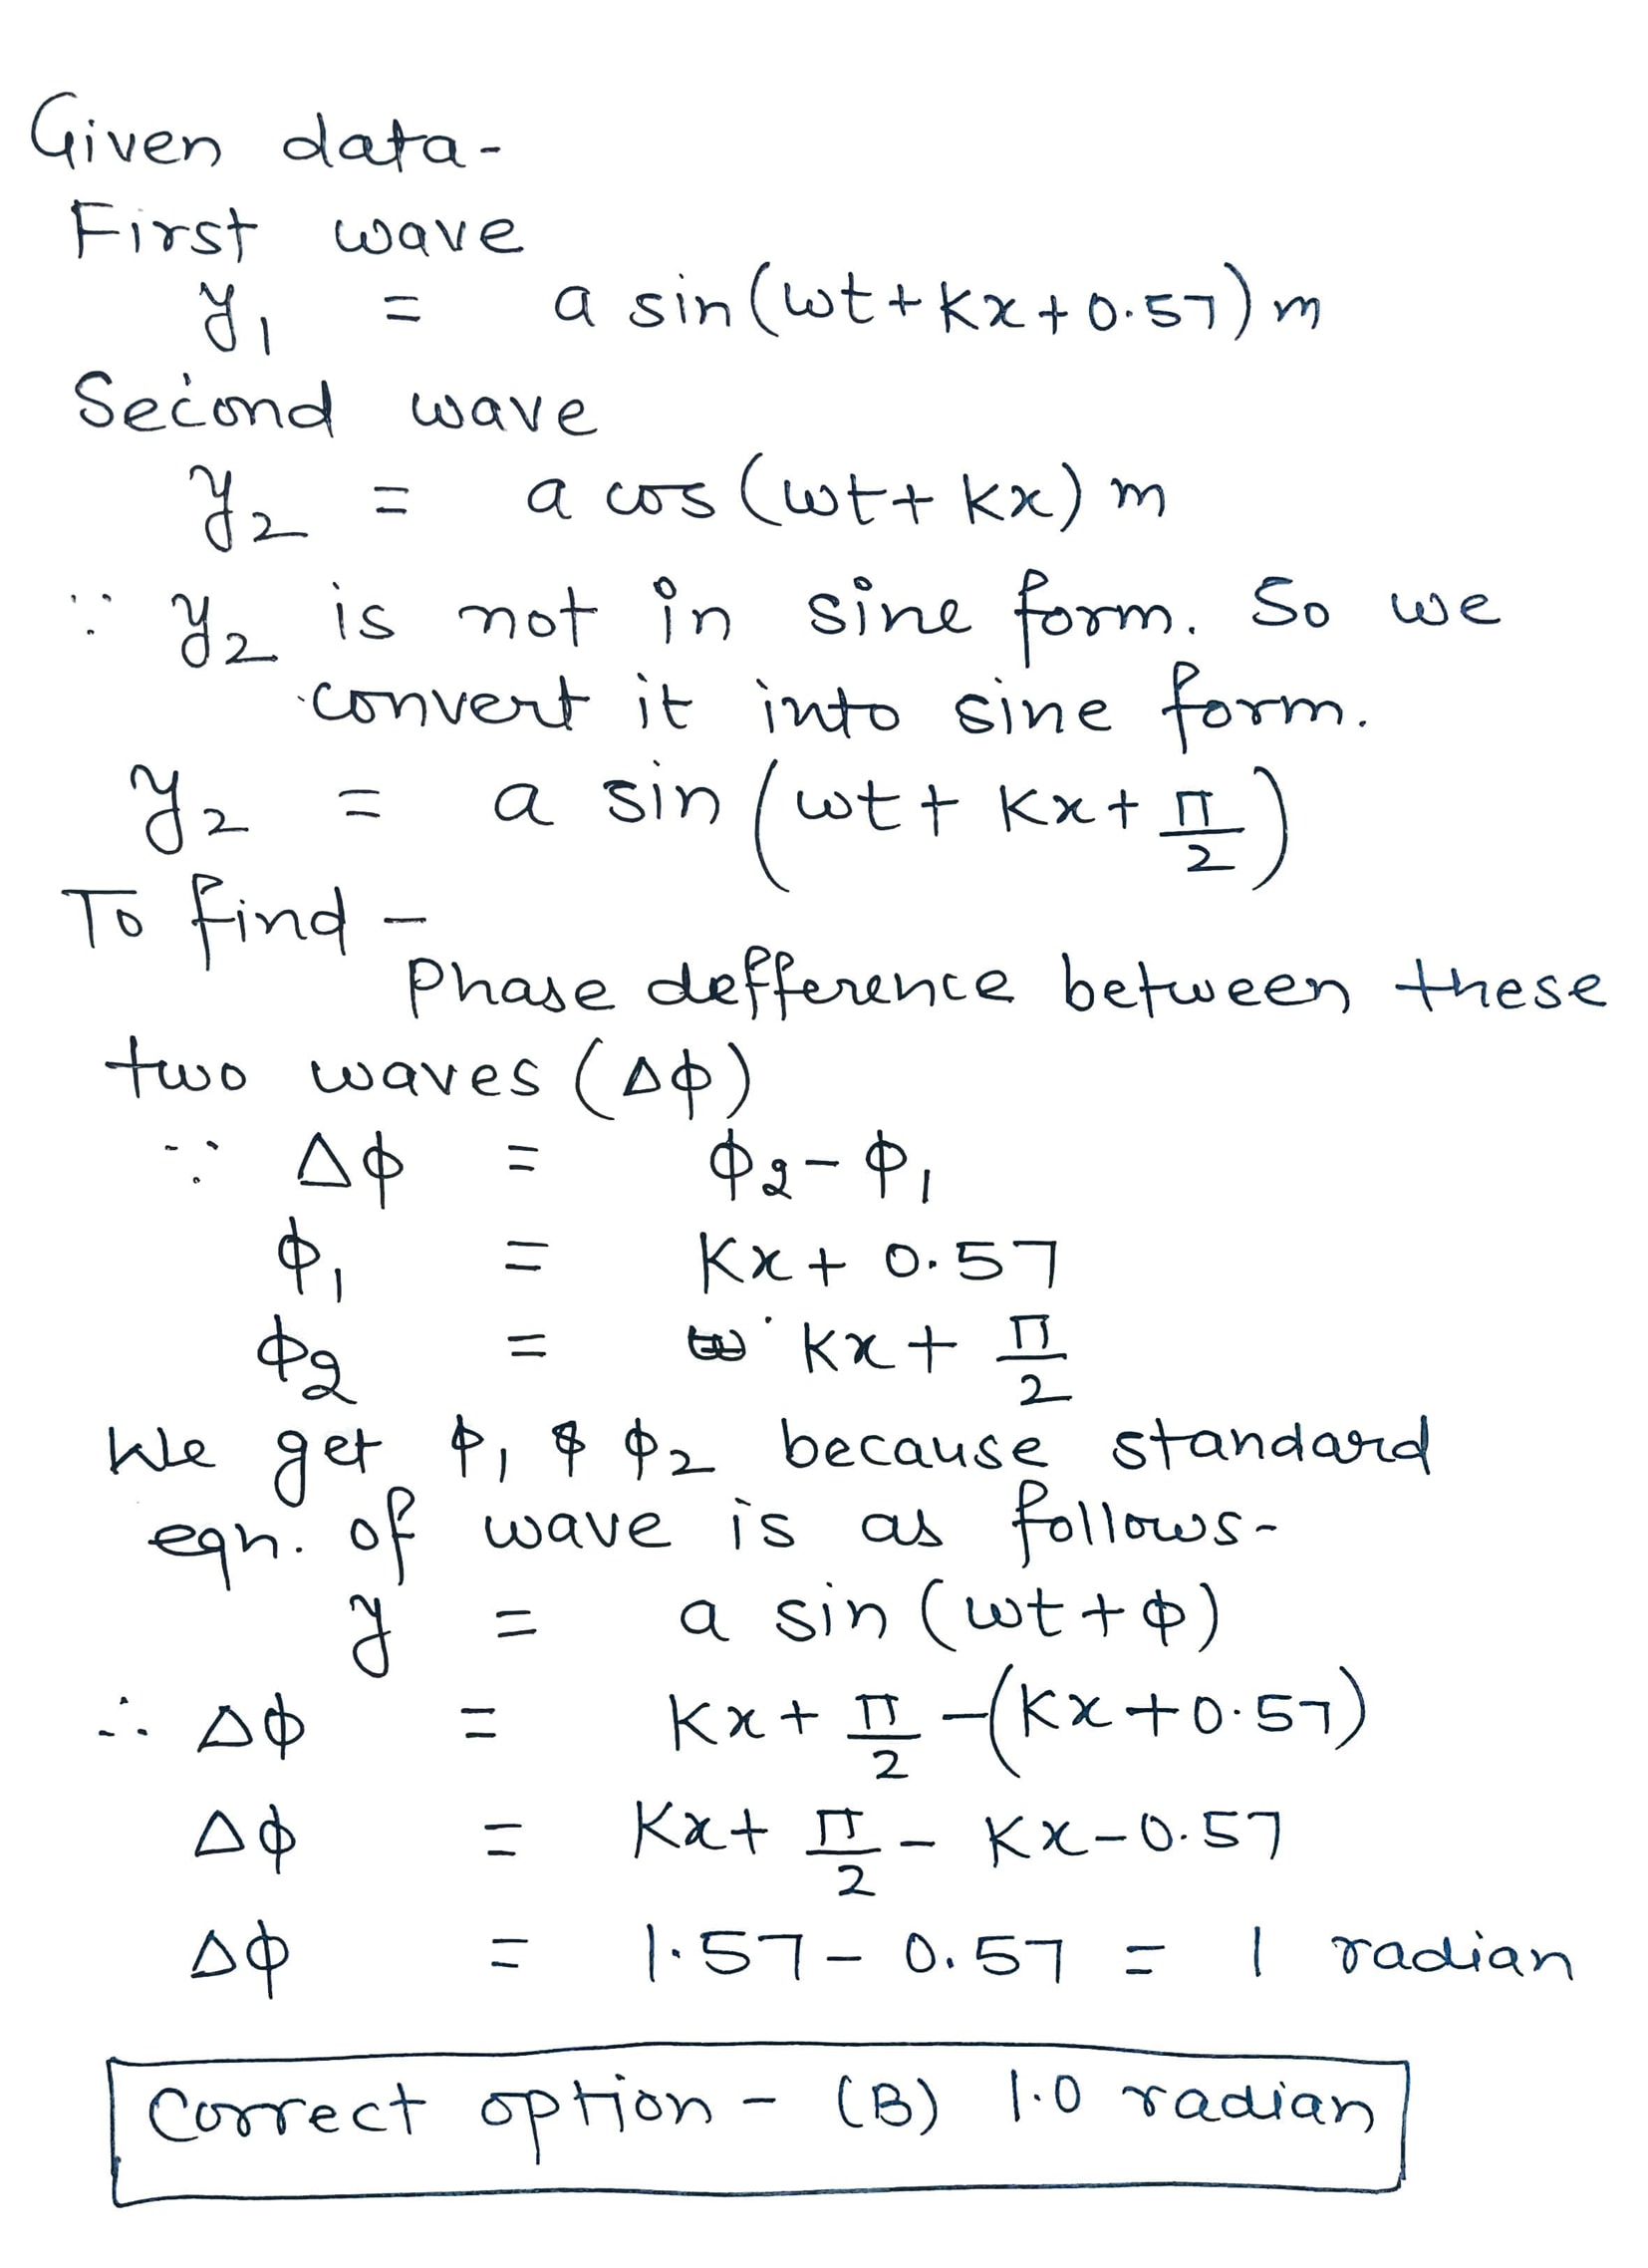 Given data-
First wave
y₁ = a sin(ωt+Kx+0.57) m
Second wave
y₂ = a cos (ωt+ Kx) m
∵ y₂ is not in sine form. So we
convert it into sine form.
y₂ = a sin (ωt + Kx + π/2)
To find -
Phase defference between these
two waves (Δϕ)
∵ Δϕ = ϕ₂-ϕ₁
ϕ₁ = Kx + 0.57
ϕ₂ = Kx + π/2
We get ϕ₁ & ϕ₂ because standard
eqn. of wave is as follows-
y = a sin (ωt + ϕ)
∴ Δϕ = Kx + π/2 -(Kx+0.57)
Δϕ = Kx+ π/2 - Kx-0.57
Δϕ = 1.57 - 0.57 = 1 radian
Correct option - (B) 1.0 radian